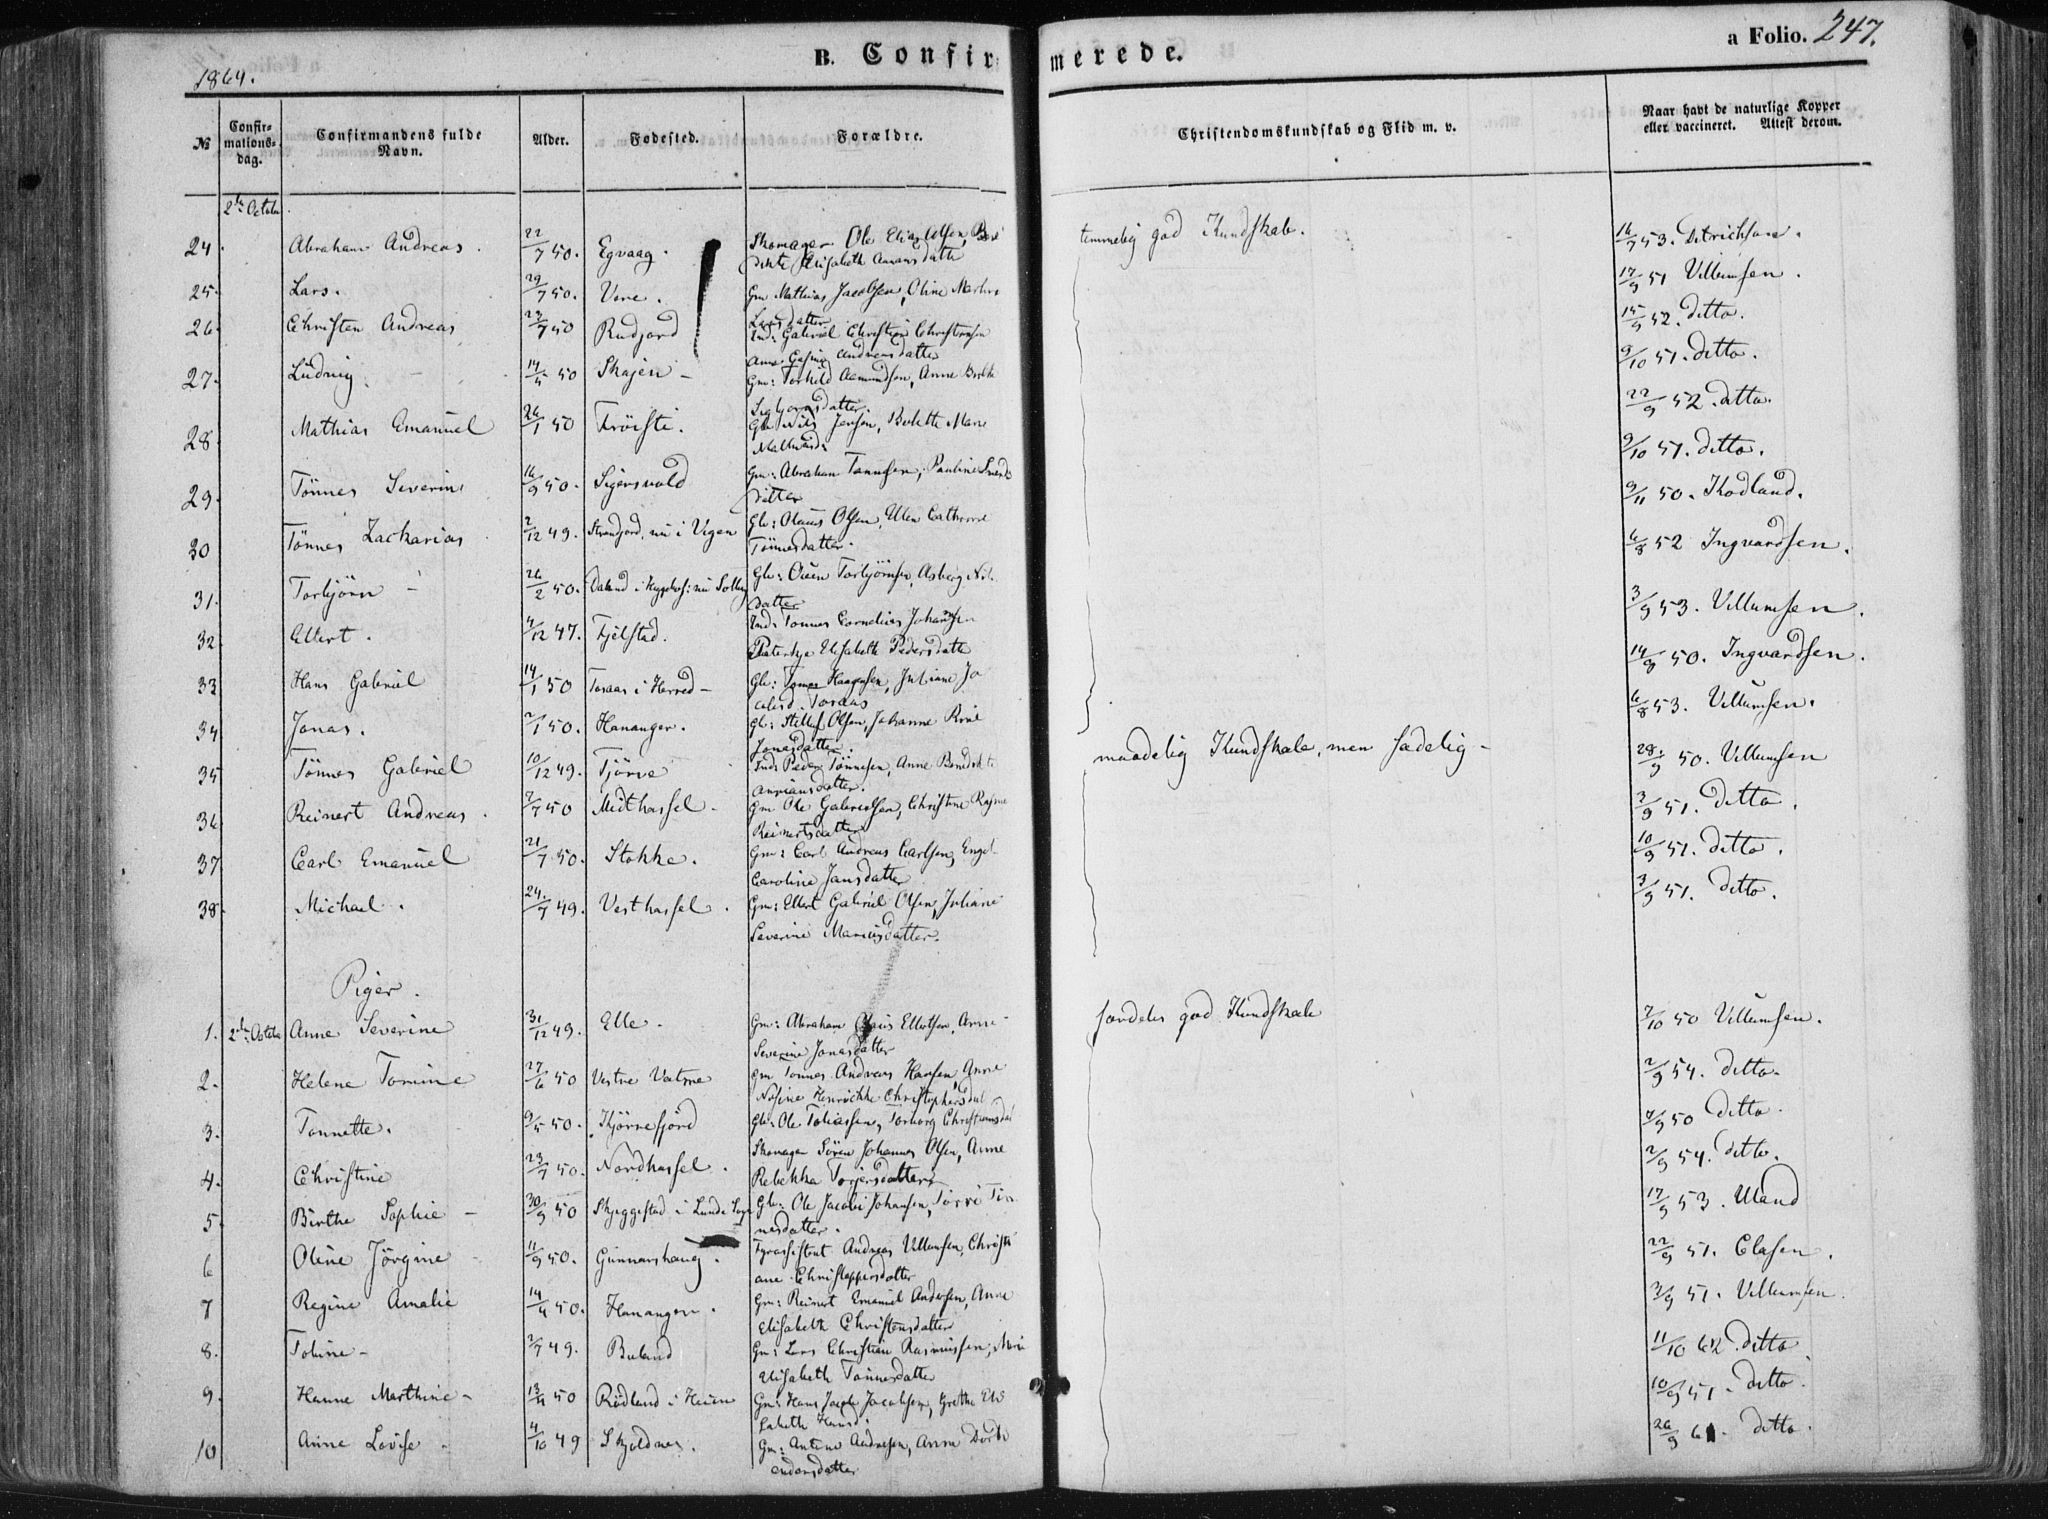 1864.
B. Confirmerede.
a Folio. 247.
№
Confirmationsdag.
Confirmandens fulde Navn.
Alder.
Fødested.
Forældre.
Christendomskundskab og Flid m. v.
Naar havt de naturlige Kopper eller vaccineret. Attest derom.
2den October
24. Abraham Andreas. 22/7 50. Egvaag. Skomager Ole Elias Olsen, Bene timmelig god Kundskab. 16/9 53. Ditrichsen.
dikte Elisabeth datter
25. Lars. 29/7 50. Vere. Gm Mathias Jacobsen, Oline Marthe 17/9 51 Villumsen.
Larsdatter
26. Christen Andreas 23/7 50 Rudjord Ind: Gabriel Christian Christensen 15/9 52. ditto.
Anne Gesine Andreasdatter
27. Ludvig. 14/5 50 Skajen Gm: Torkild Aamundsen, Anne Birthe 9/10 51. ditto.
datter.
28. Mathias Emanuel 26/1 50 Fröisti. Gb Nils Jensen, Bolette Marie 22/9 52. ditto.
29. Tönnes Severin 16/9 50. Sigersvold Gm: Abraham Tönnesen, Pauline 9/10 51. ditto.
datter
30 Tönnes Zacharias 2/12 49. Strandjord, nu i Vigen Gb: Olaus Olsen, Ulen Cathrine 9/11 50. Kodland.
Tönnesdatter.
31. Torbjörn 26/2 50. Gb: Ouen Torbjörnsen, Asberg Nils 6/8 52 Ingvardsen.
datter
32. Ellert. 4/12 47. Fjelstad. Ind: Tönnes Cornelius Johansen 3/9 53. Villumsen.
Elisabeth Pedersdatter
33 Hans Gabriel 14/1 50 Toraas i Herred Gb: Tomas Haagensen, Juliane Ja 14/8 50. Ingvardsen.
Toraas
34 Jonas. 2/1 50. Hananger. Gb: Olsen, Johanne 6/8 53. Villumsen.
Jonasdatter.
35 Tönnes Gabriel 10/12 49. Tjörve Ind: Peder Tönnesen, Anne Bendikte maadelig Kundskab, men sædelig 28/9 50. Villumsen
datter.
36 Reinert Andreas. 7/7 50 Midthassel Gm Ole Gabrielsen, Christine 3/9 51. ditto.
Reinertsdatter
37 Carl Emanuel 21/7 50. Stokke. Gm: Carl Andreas Carlsen, Engel 10/9 51. ditto.
Caroline Jansdatter
38. Michael. 24/7 49. Vesthassel. Gm: Ellert Gabriel Olsen, Juliane 3/9 51. ditto.
Severine Mariusdatter.
Piger.
1. 2den October Anne Severine 31/12 49. Elle. Gm: Abraham Ellertsen, Anne særdeles god Kundskab 7/10 50 Villumsen.
Severine Jonasdatter
2. Helene Tomine 27/6 50 Vestre Vatne Gm Tönnes Andreas Hansen, Anne 2/9 54. ditto.
Christophersdat
3. Tonnette. 9/5 50. Kjörrefjord Gb: Ole Tobiassen, Torborg Christiansdat 7/9 50 ditto.
4. Christine 23/7 50. Nordhassel. Skomager Sören Johannes Olsen, Anne 2/9 54. ditto.
Rebekka Torjersdatter
5. Birthe Sophie 30/9 50 Skjeggestad i Lunde Sogn Gb: Ole Jacobi Johansen, 17/9 53. Uland
nesdatter.
6 Oline Jörgine 11/9 50. Gunnarshaug. Fyrassistent Andreas Villumsen, Christi 22/9 51. Clasen.
ane Christoppersdatter
7 Regine Amalie 14/4 50. Hananger. Gm: Reinert Emanuel Andersen, Anne 3/9 51. Villumsen.
Elisabeth Christensdatter
8. Tobine 2/7 49. Buland Gm: Lars Christian Rasmussen, 11/10 62 ditto
Elisabeth Tönnesdatter
9. Hanne Marthine 13/4 50 Rödland i Gm: Hans Jacob Jacobsen, Grethe Eli 10/9 51. ditto.
sabeth Hansd.
10 Anne Lovise. 4/10 49 Skjoldnes. Gm: Antoni Andresen, Anne Dorthe 26/9 61. ditto.